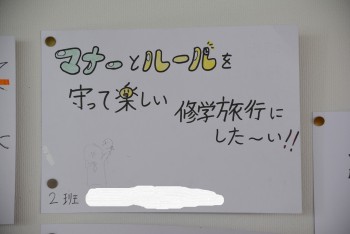 マナーとルールを
守って楽しい 修学旅行に
した〜い!!
2班